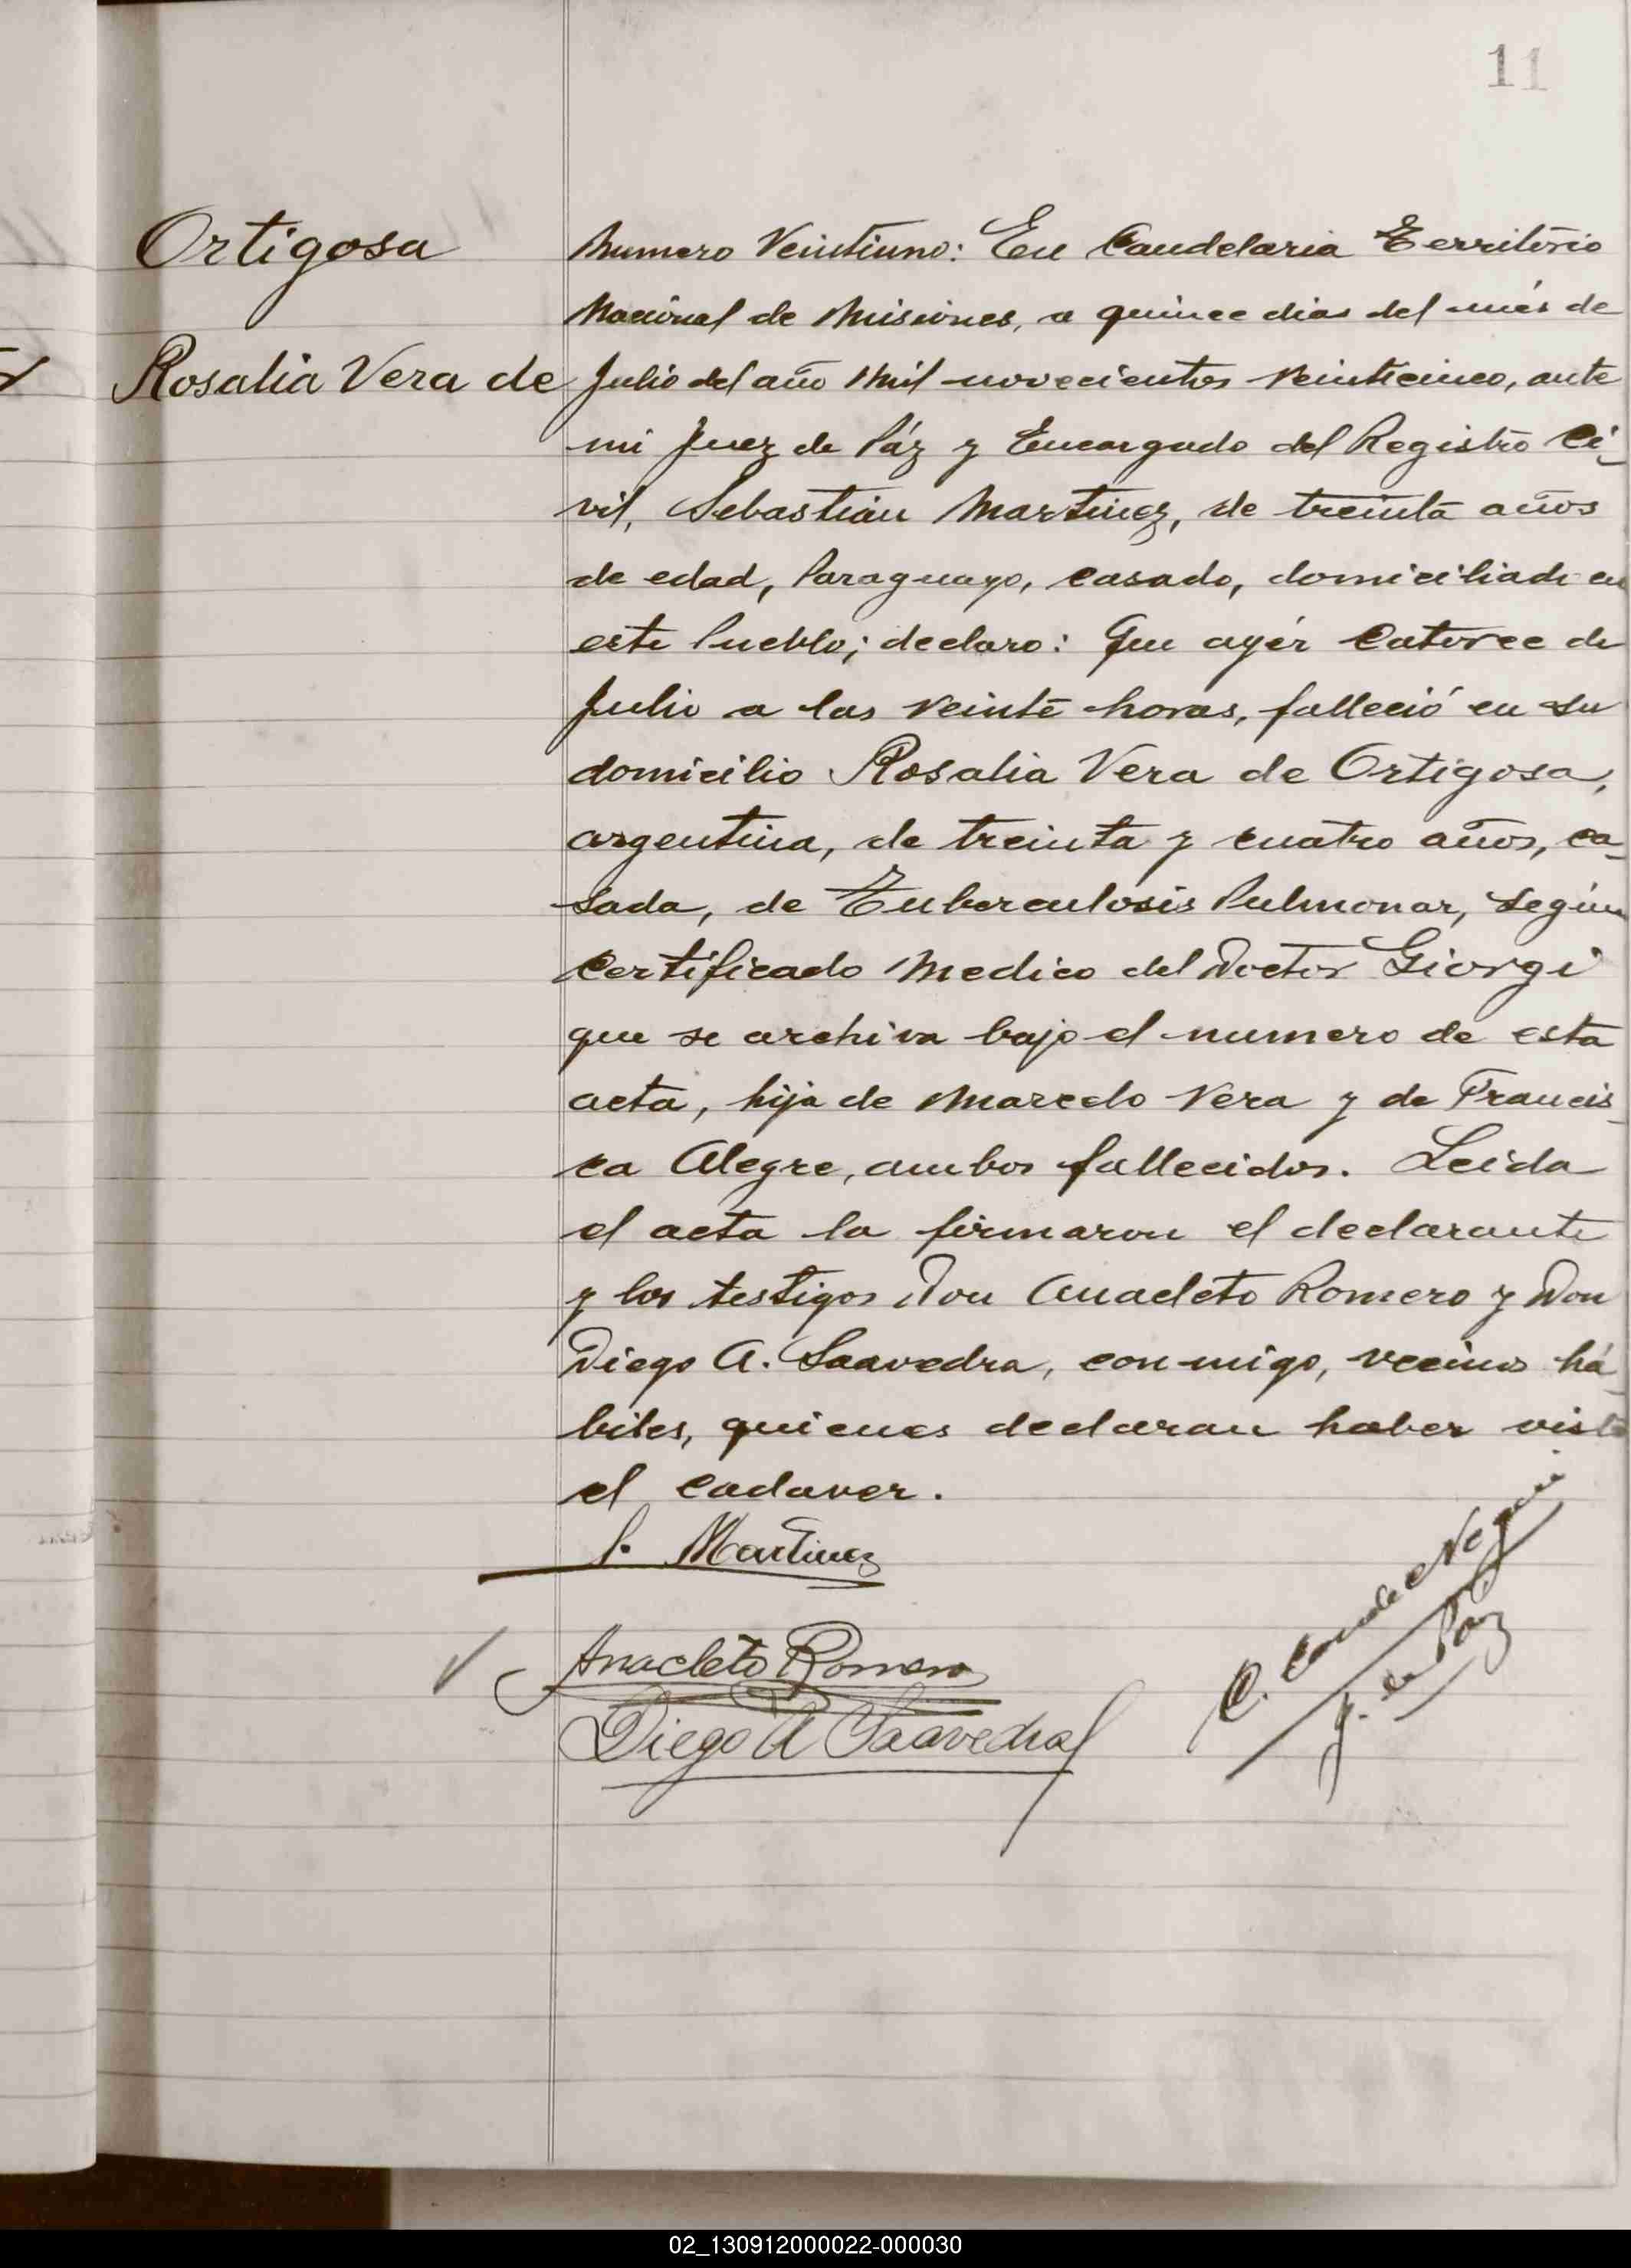 11
Ortigosa
Rosalia Vera de
Numero Veintiuno: En Candelaria Territorio
Nacional de Misiones, a quince dias del més de
Julio del año mil novecientos veinticinco, ante
mi Juez de Páz y Encargado del Registro Ci-
vil, Sebastian Martinez, de treinta años
de edad, Paraguayo, casado, domiciliado en
este Pueblo; declaro: Que ayér catorce de
Julio a las veinte horas, falleció en su
domicilio Rosalia Vera de Ortigosa,
argentina, de treinta y cuatro años, ca-
sada, de Tuberculosis Pulmonar, según
Certificado Medico del Doctor Giorgi
que se archiva bajo el numero de esta
acta, hija de Marcelo Vera y de Francis-
ca Alegre, ambos fallecidos. Leida
el acta la firmaron el declarante
y los testigos Don Anacleto Romero y Don
Diego A. Saavedra, conmigo, vecinos há-
biles, quienes declaran haber visto
el cadaver.
S. Martinez
Anacleto Romero
Diego A Saavedra
J. de Paz
02_130912000022-000030